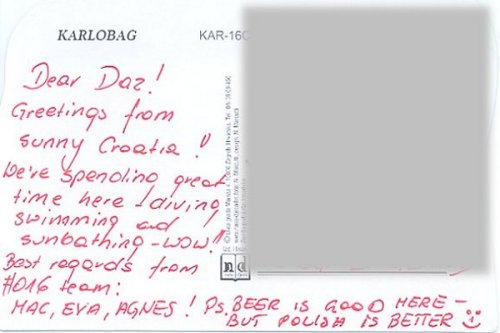 KARLOBAG
KAR-16
Dear Daz!
Greetings from
sunny Croatia!!
We're spending great
time here! diving,
swimming and
sunbathing - WOW!
Best regards from
#016 team:
MAC, EVA, AGNES! Ps. BEER IS GOOD HERE -
BUT POLISH IS BETTER